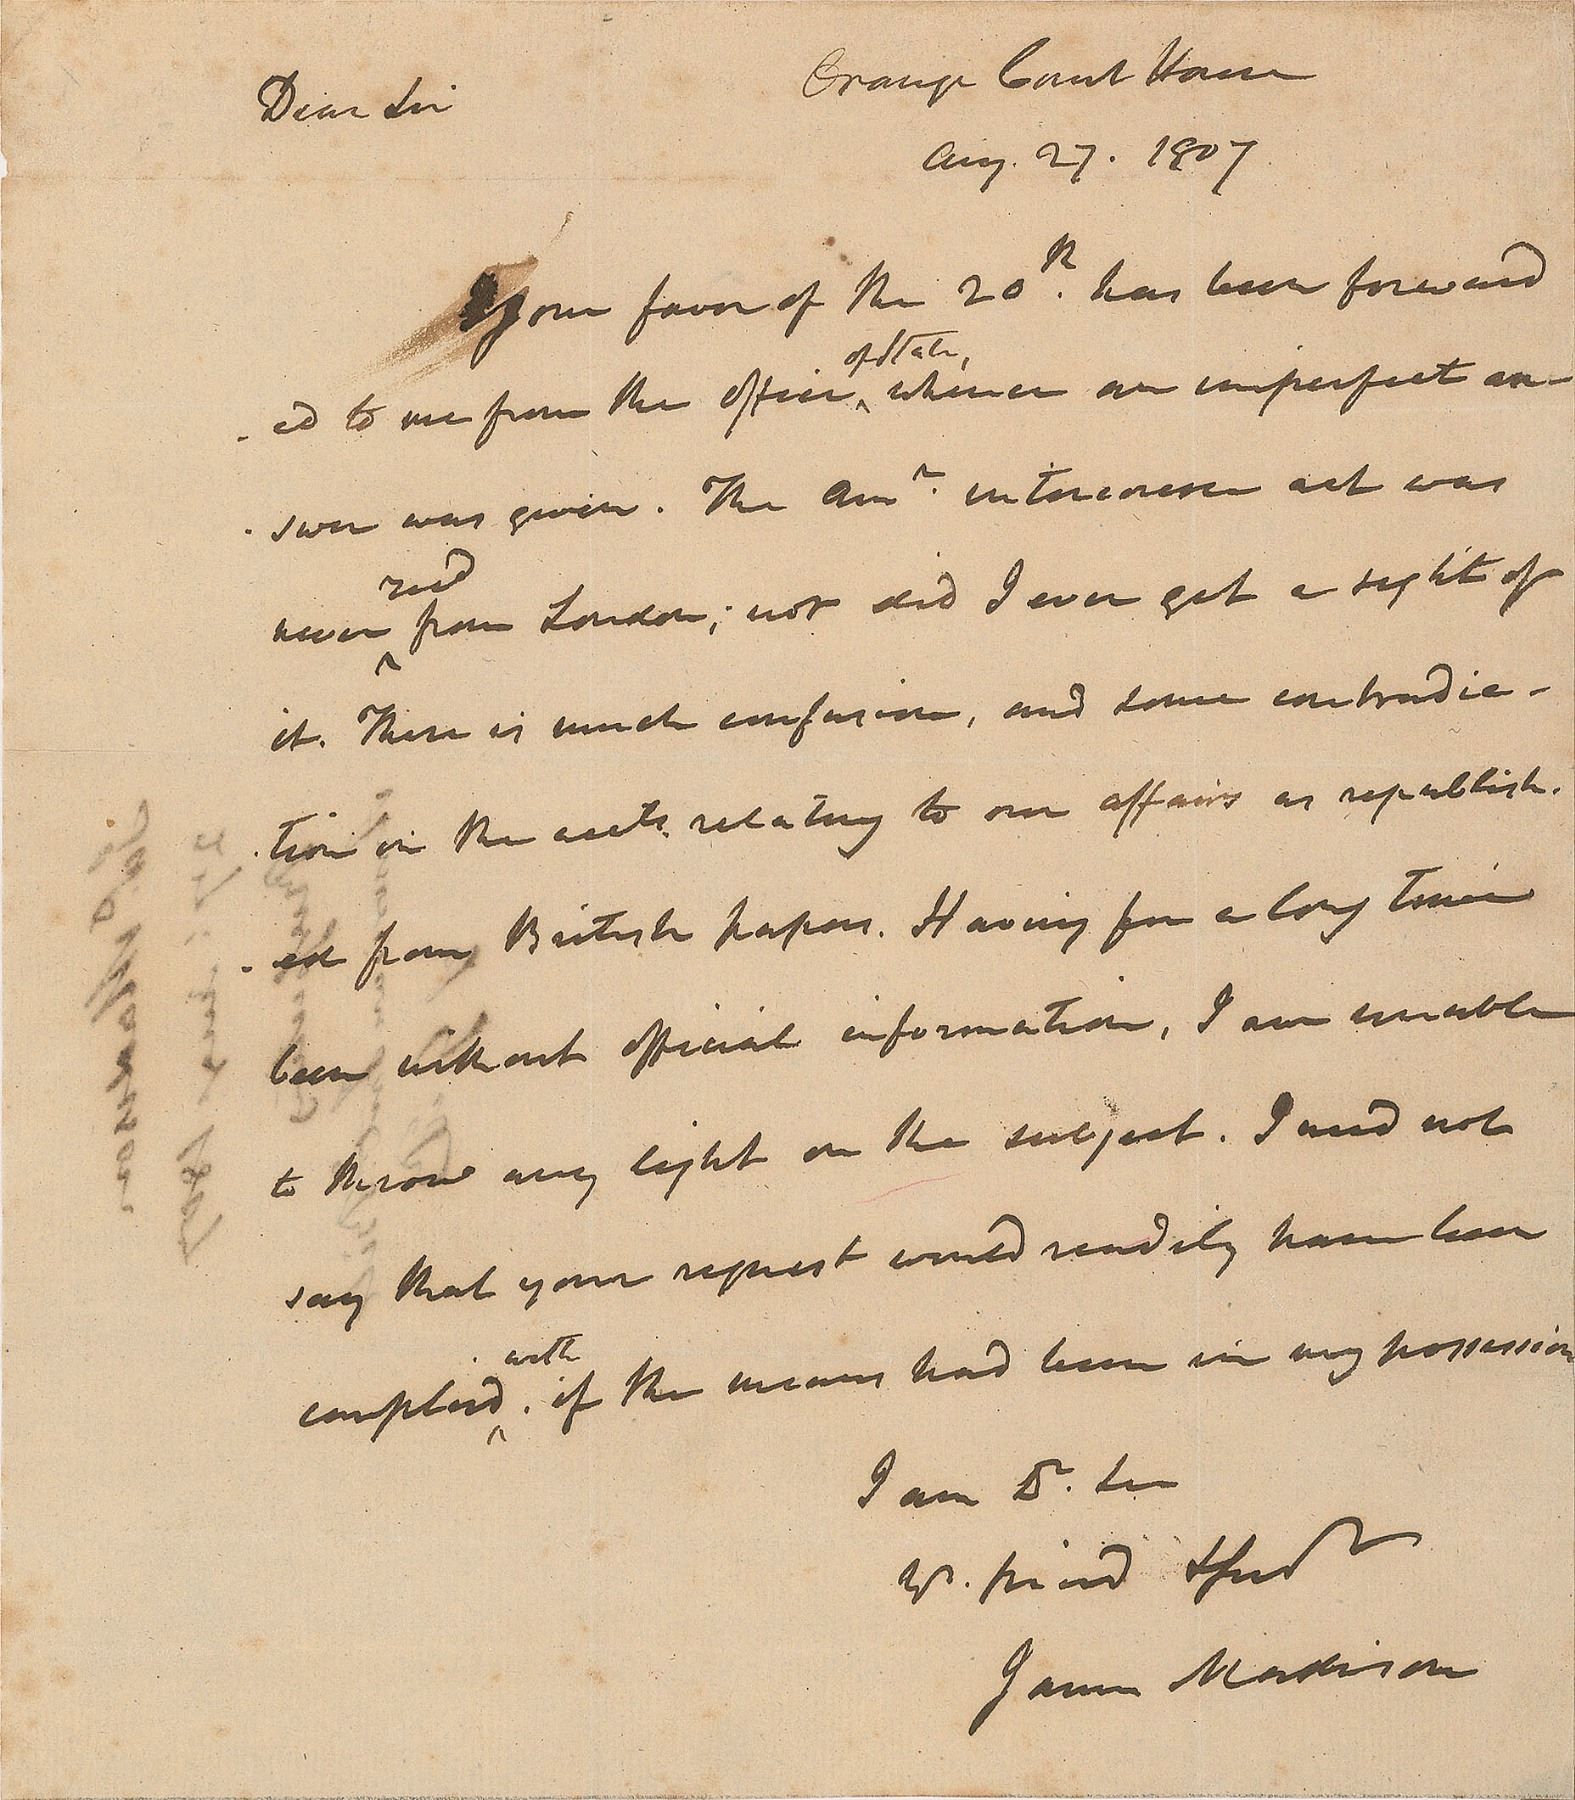 Orange Court House
Dear Sir
Aug. 27. 1807
Your favor of the 20th. has been forward
-ed to me from the office of State, whence an imperfect an-
-swer was given. The Amn. intercourse act was
never recd from London; nor did I ever get a sight of
it. There is much confusion, and some contradic-
-tion in the acts relating to our affairs as republish-
-ed from British papers. Having for a long time
been without official information, I am unable
to throw any light on the subject. I need not
say that your request would readily have been
complied with. if the means had been in my possession
I am Dr. Sir
yr. friend &
James Madison